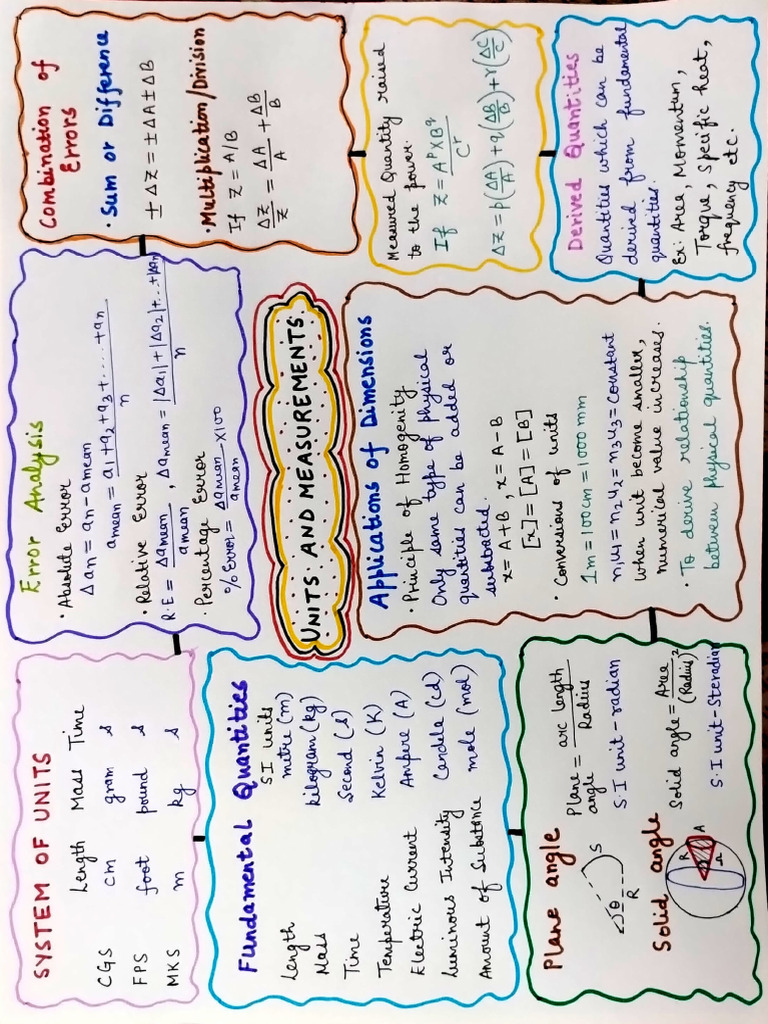 SYSTEM OF UNITS
Length Mass Time
CGS cm gram s
FPS foot pound s
MKS m kg s
Fundamental Quantities
SI units
Length metre (m)
Mass kilogram (kg)
Time Second (s)
Temperature Kelvin (K)
Electric Current Ampere (A)
Luminous Intensity Candela (cd)
Amount of Substance mole (mol)
Plane angle
Plane angle = arc length / Radius
S.I unit - radian
θ R S
Solid angle
Solid angle = Area / (Radius)²
S.I unit - Steradian
R A Ω
Error Analysis
• Absolute Error
Δan = an - amean
amean = a1 + a2 + a3 + ..... + an / n
• Relative Error
R.E = Δamean / amean , Δamean = |Δa1| + |Δa2| + ... + |Δan| / n
Percentage Error
% Error = Δamean / amean X100
UNITS AND MEASUREMENTS
Applications of Dimensions
• Principle of Homogenity
Only same type of physical
quantities can be added or
subtracted.
x = A+B , x = A-B
[x] = [A] = [B]
• Conversions of units
1m = 100cm = 1000mm
n1u1 = n2u2 = n3u3 = constant
when unit become smaller,
numerical value increases.
• To derive relationship
between physical quantities.
Combination of
Errors
• Sum or Difference
± ΔZ = ± ΔA ± ΔB
• Multiplication/Division
If Z = A/B
ΔZ / Z = ΔA / A + ΔB / B
Measured Quantity raised
to the power.
If Z = A^p X B^q / C^r
ΔZ = p(ΔA/A) + q(ΔB/B) + r(ΔC/C)
Derived Quantities
Quantities which can be
derived from fundamental
quantities.
Ex: Area, Momentum,
Torque, Specific heat,
frequency etc.